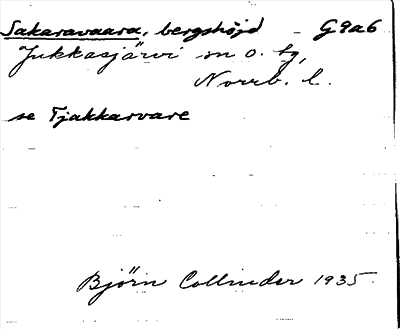 Sakaravaara, bergshöjd - G9a6
Jukkasjärvi sn o. tg,
Norrb. l.
se Tjakkarvare
Björn Collinder 1935.